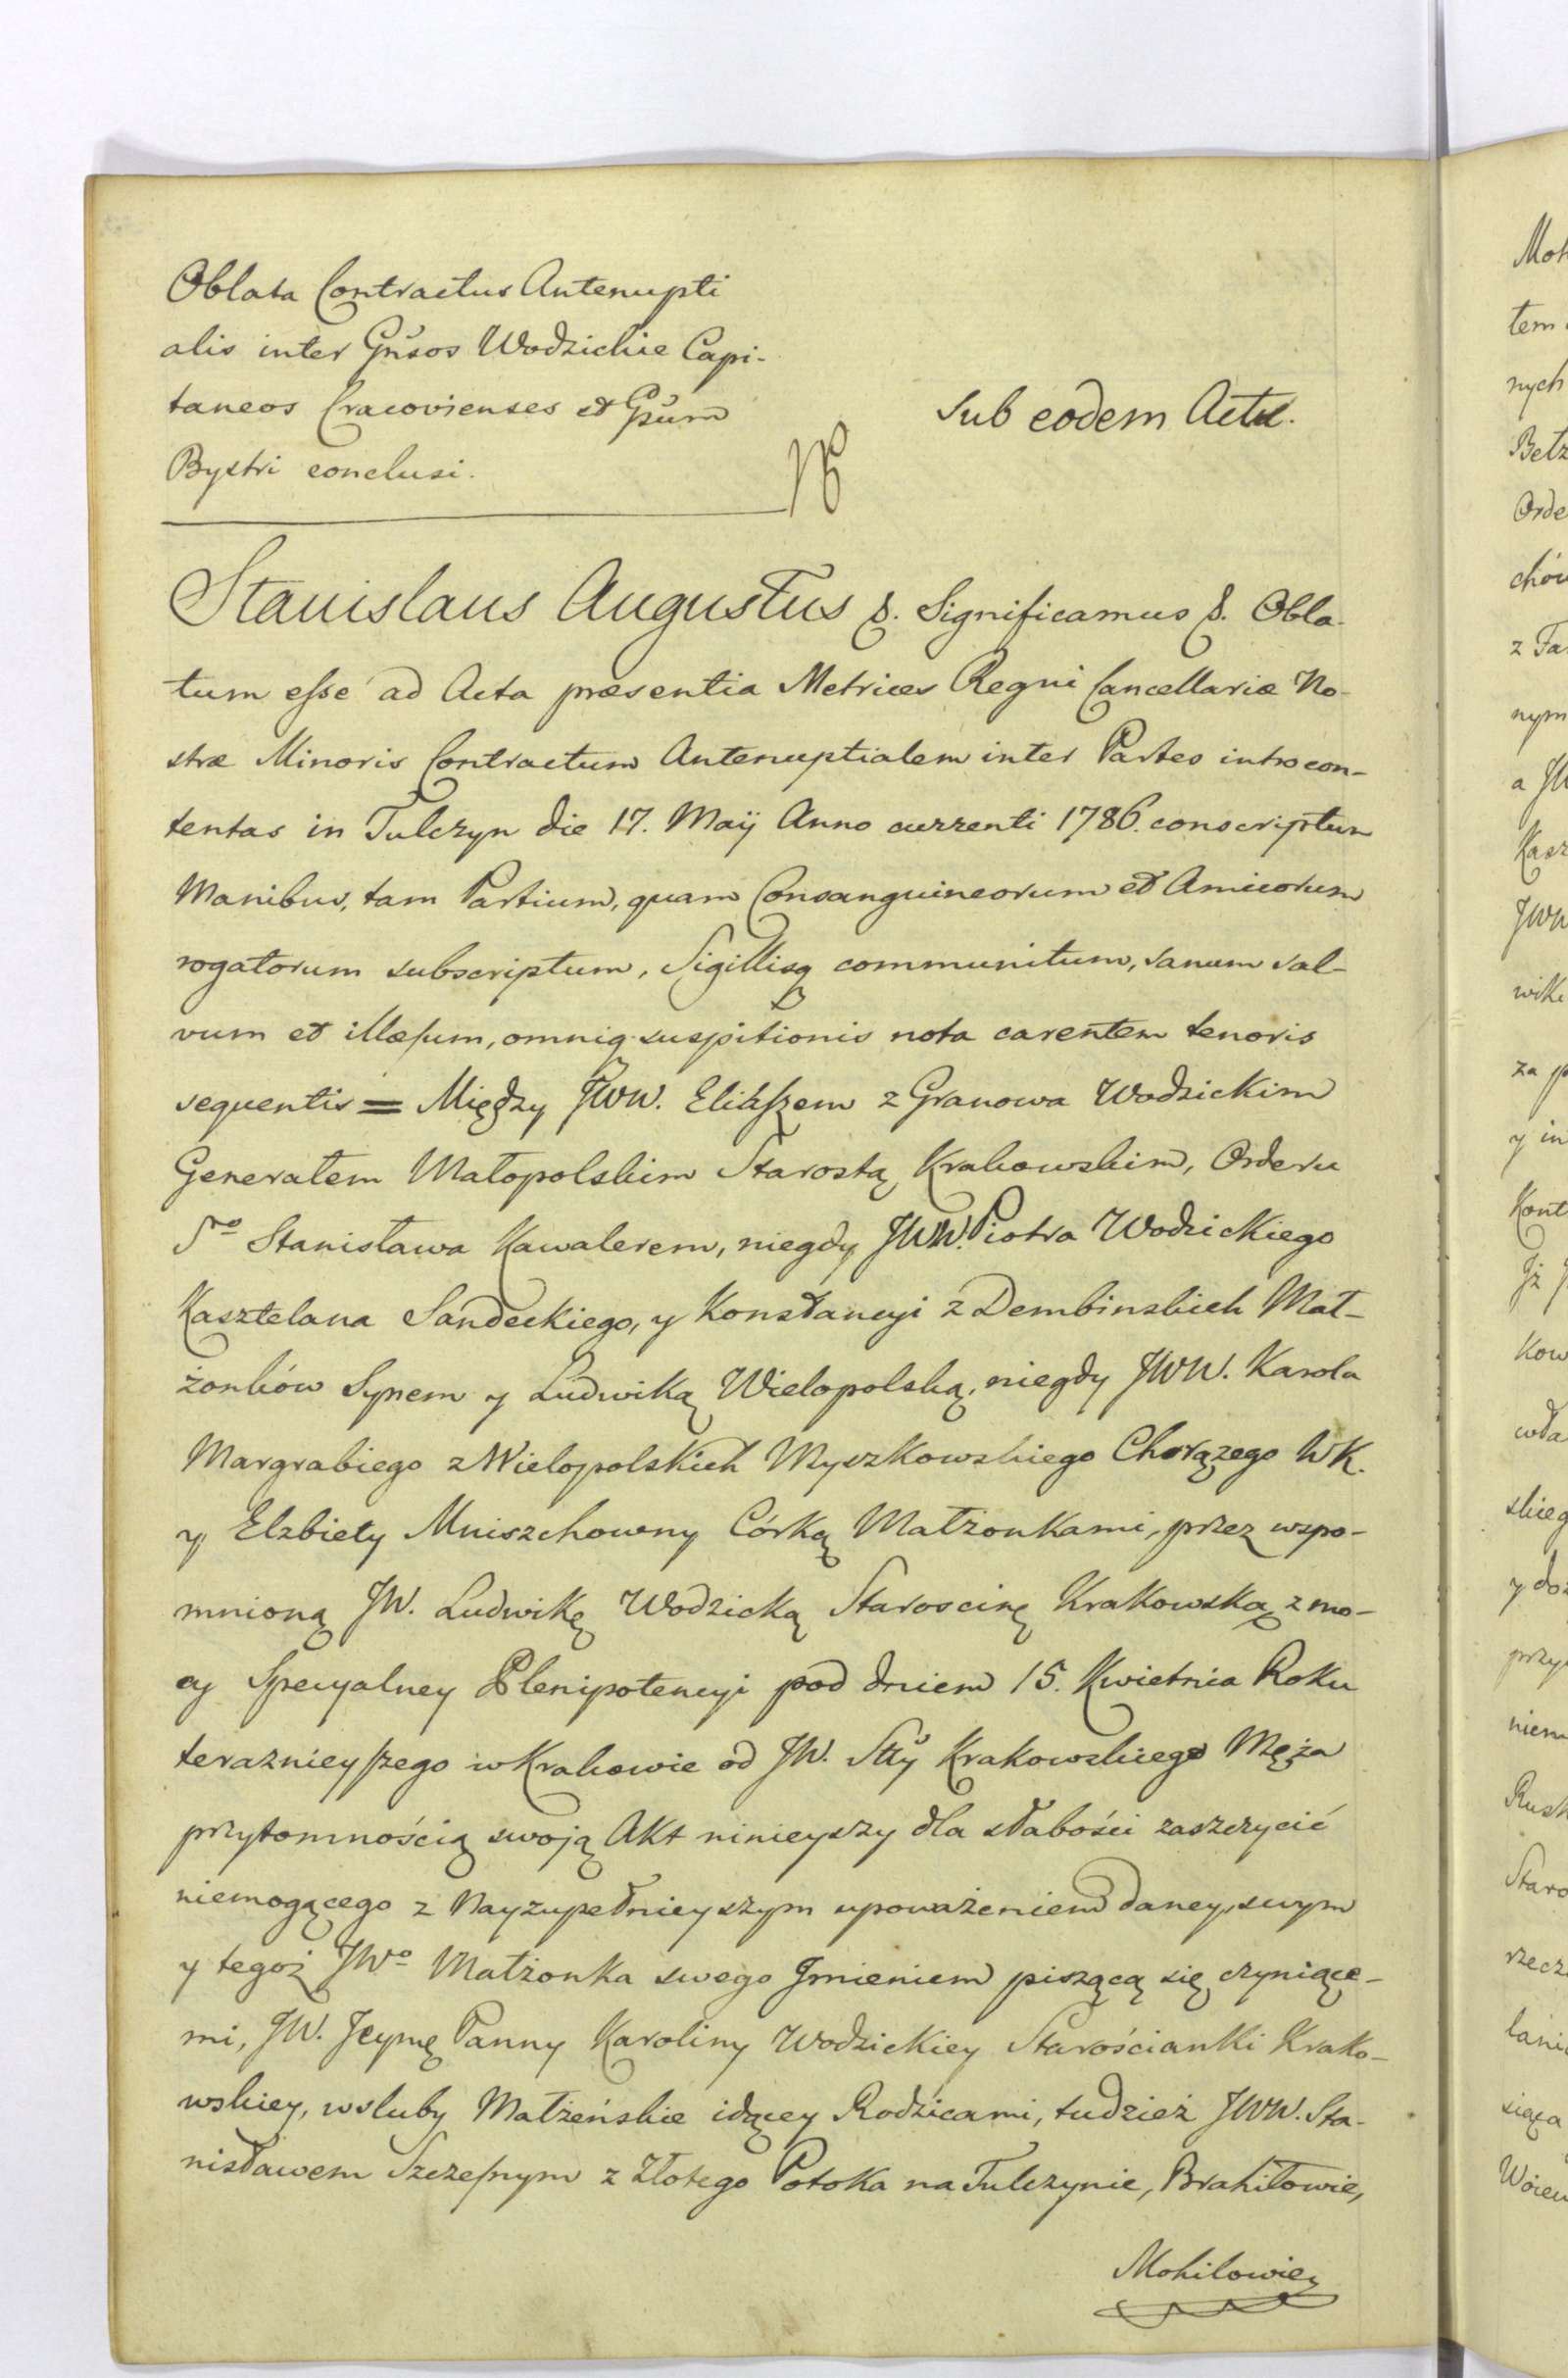 Oblata Contractus Antenupti
alis inter Gn̄sos Wodzickie Capi-
taneos Cracovienses et Gn̄sum
Bystri conclusi.
Sub eodem Actu.
Stanislaus Augustus &. Significamus &. Obla-
tum esse ad Acta præsentia Metrices Regni Cancellariæ No-
stræ Minoris Contractum Antenuptialem inter Partes introcon-
tentas in Tulczyn die 17. Maÿ Anno currenti 1786. conscriptum
Manibus, tam Partium, quam Consanguineorum et Amicorum
rogatorum subscriptum, Sigillisq communitum, sanum sal-
vum et illæsum, omniq suspitionis nota carentem tenoris
sequentis = Między JWW. Eliaszem z Granowa Wodzickim
Generałem Małopolskim Starostą Krakowskim, Orderu
Sgo Stanisława Kawalerem, niegdy JWW. Piotra Wodzickiego
Kasztelana Sandeckiego, y Konstancyi z Dembinskich Mał-
żonków Synem y Ludwiką Wielopolską, niegdy JWW. Karola
Margrabiego z Wielopolskich Myszkowskiego Chorążego WK.
y Elzbiety Mniszchowny Córką Małżonkami, przez wspo-
mnioną JW. Ludwikę Wodzicką Starościnę Krakowską z mo-
cy Specyalney Plenipotencyi pod dniem 15. Kwietnia Roku
teraznieyszego w Krakowie od JW. Stty Krakowskiego Męża
przytomnością swoją Akt ninieyszy dla słabości zaszczycić
niemogącego z Nayzupełnieyszym upoważeniem daney, swym
y tegoż JWo Małżonka swego Jmieniem piszącą się czyniące-
mi, JW. Jeymę Panny Karoliny Wodzickiey Starościanki Krako-
wskiey, wsluby Małżeńskie idącey Rodzicami, tudzież JWW. Sta-
nisławem Szczesnym z Złotego Potoka na Tulczynie, Brahiłowie,
Mohilowie,